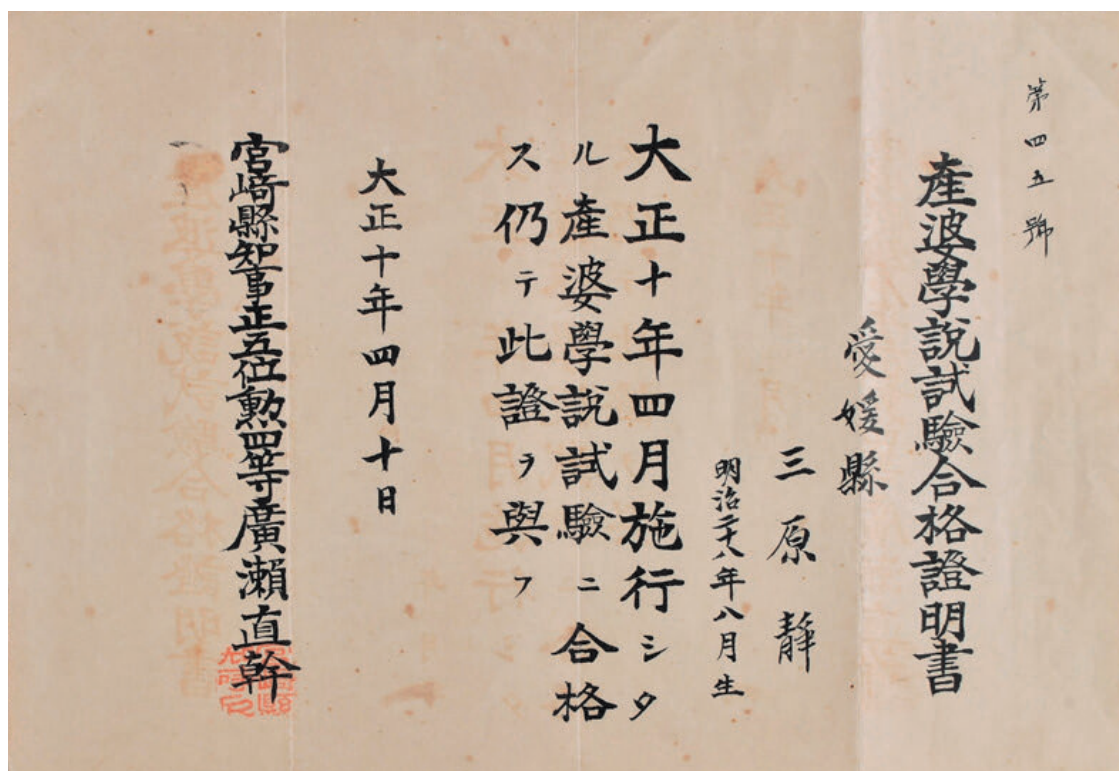 第四五號
產婆學說試驗合格證明書
愛媛縣
三原靜
明治二十八年八月生
大正十年四月施行シタ
ル產婆學說試驗ニ合格
ス仍テ此證ヲ與フ
大正十年四月十日
宮崎縣知事正五位勳四等廣瀨直幹